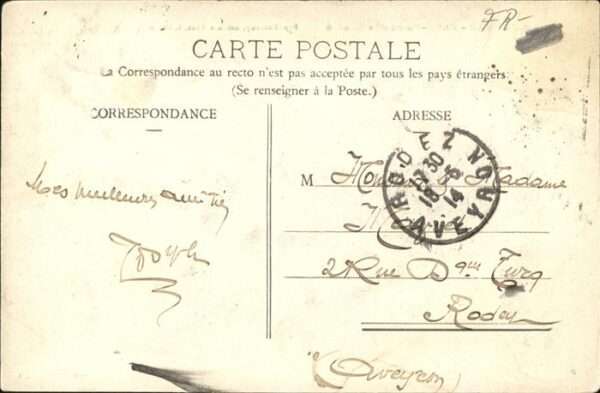 FR-
CARTE POSTALE
La Correspondance au recto n'est pas acceptée par tous les pays étrangers
(Se renseigner à la Poste.)
CORRESPONDANCE
ADRESSE
Mes meilleures amitiés
Joseph
M Monsieur & Madame
2 Rue Dque Turq
Rodez
(Aveyron)
RODEZ
17 30
18 - 6
14
AVEYRON